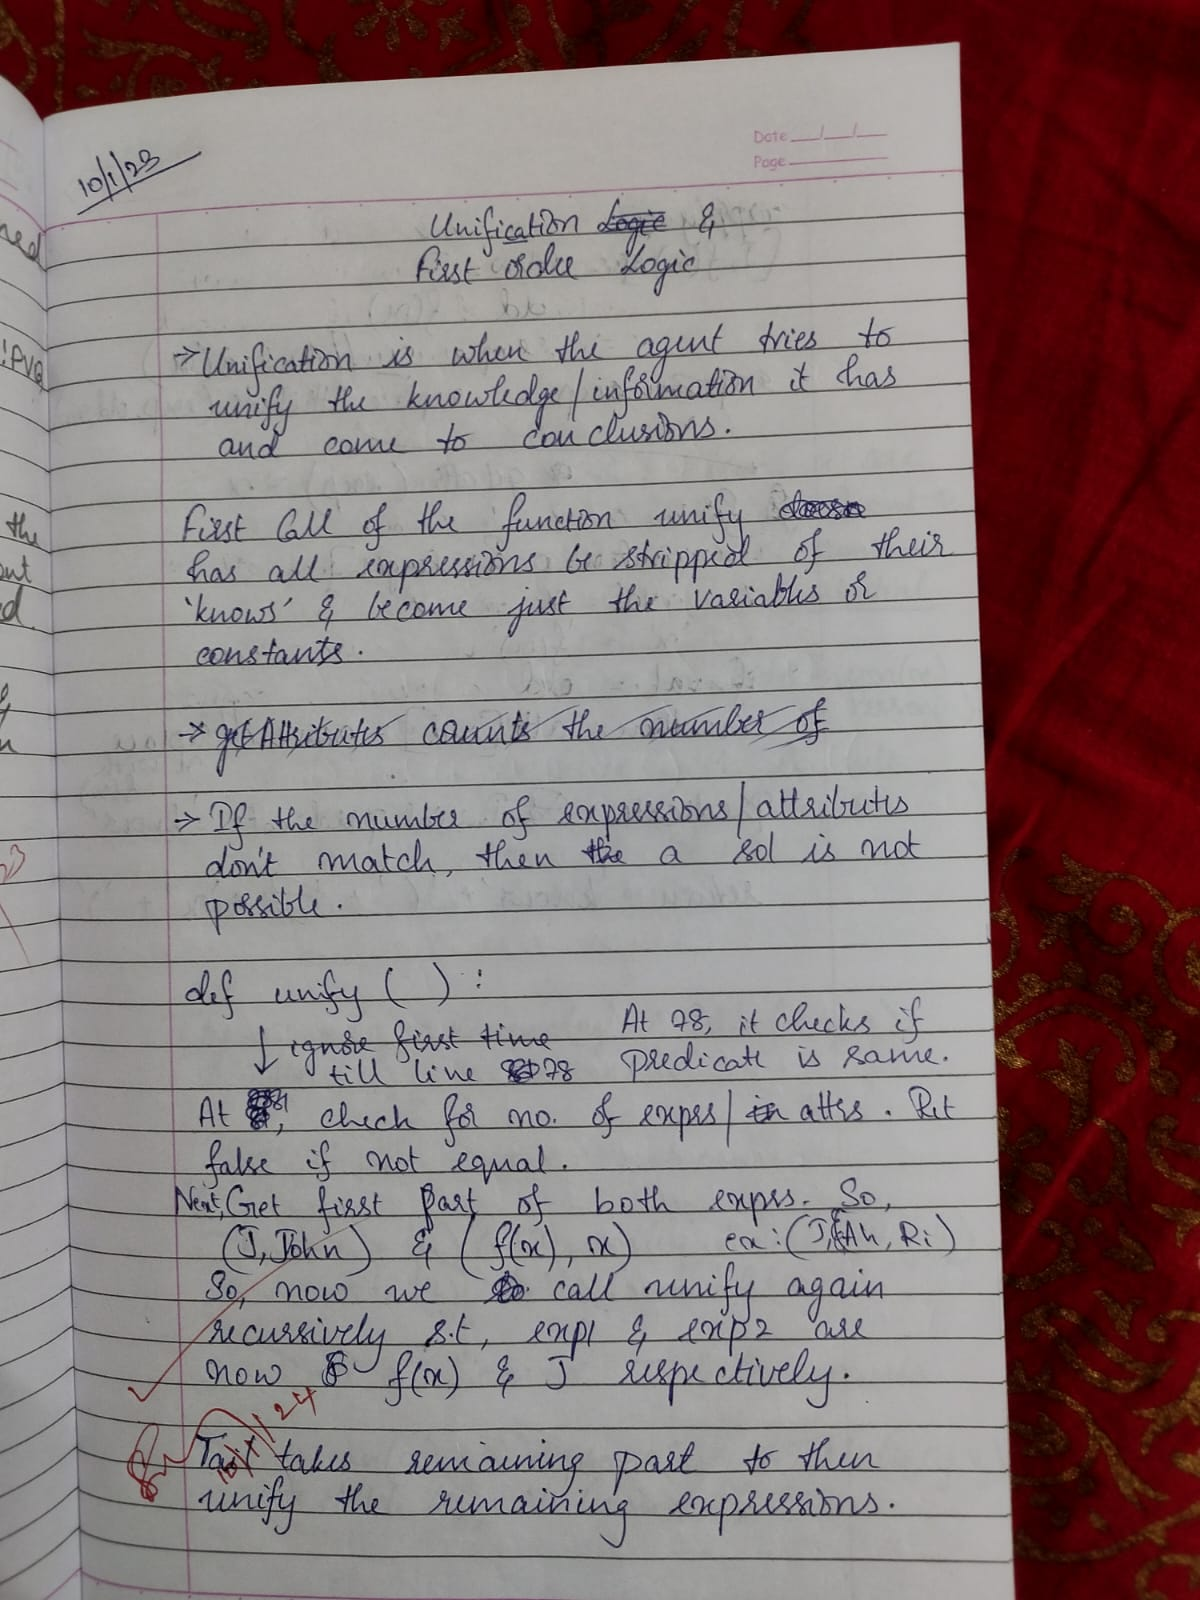 Date __/__/__
Page
10/1/23
Unification Logic &
First order Logic
→ Unification is when the agent tries to
unify the knowledge/information it has
and come to conclusions.
First Call of the function unify
has all expressions be stripped of their
'knows' & become just the variables or
constants.
→ getAttributes counts the number of
→ If the number of expressions/attributes
don't match, then the a sol is not
possible.
def unify ( ) :
↓ ignore first time
till line 78
At 78, it checks if
predicate is same.
At 81, check for no. of exprs/in attrs. Ret
false if not equal.
Next, Get first part of both exprs. So,
(J, John) & (f(x), x) ex: (J, Ah, Ri)
So, now we call unify again
recursively s.t, exp1 & exp2 are
now f(x) & J respectively.
Tail takes remaining part to then
unify the remaining expressions.
10/1/24
ned
!PVQ
the
out
d.